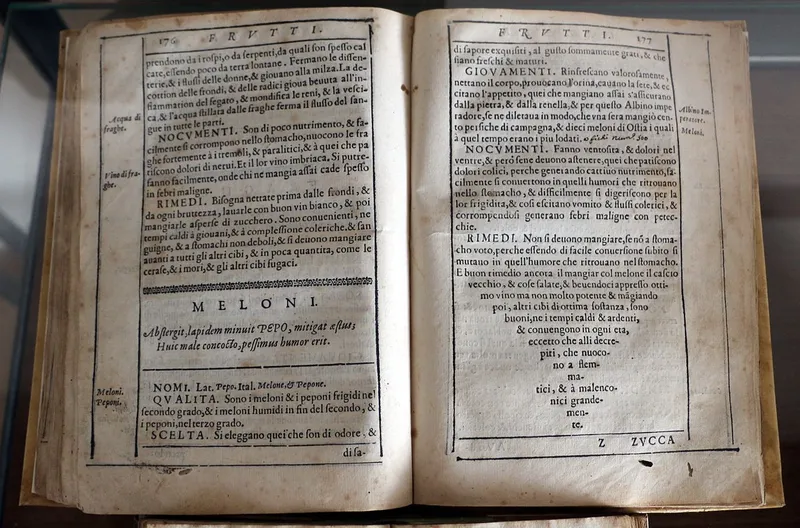 176 FRVTTI.
prendono da i rospi, o da serpenti, da quali son spesso cal
cate, essendo poco da terra lontane. Fermano le dissen-
terie, & i flussi delle donne, & giouano alla milza. La de-
cottion delle frondi, & delle radici gioua beuuta all'in-
flammation del fegato, & mondifica le reni, & la vesci-
ca, & l'acqua stillata dalle fraghe ferma il flusso del san-
gue in tutte le parti.
Acqua di
fraghe.
NOCVMENTI. Son di poco nutrimento, & fa-
cilmente si corrompono nello stomacho, nuocono le fra
ghe fortemente à i tremoli, & paralitici, & à quei che pa
tiscono dolori di nerui. Et il lor vino imbriaca. Si putre-
fanno facilmente, onde chi ne mangia assai cade spesso
in febri maligne.
Vino di fra-
ghe.
RIMEDI. Bisogna nettarle prima dalle frondi, &
da ogni bruttezza, lauarle con buon vin bianco, & poi
mangiarle asperse di zucchero. Sono conuenienti, ne
tempi caldi à giouani, & à complessione coleriche, & san
guigne, & a stomachi non deboli, & si deuono mangiare
auanti a tutti gli altri cibi, & in poca quantita, come le
cerase, & i mori, & gli altri cibi fugaci.
MELONI.
Abstergit, lapidem minuit PEPO, mitigat æstus;
Huic male concocto, pessimus humor erit.
Meloni.
Peponi.
NOMI. Lat. Pepo. Ital. Melone, & Pepone.
QVALITA. Sono i meloni & i peponi frigidi nel
secondo grado, & i meloni humidi in fin del secondo, &
i peponi, nel terzo grado.
SCELTA. Si eleggano quei che son di odore, &
di sa-
FRVTTI. 177
di sapore exquisiti, al gusto sommamente grati, & che
sian freschi & maturi.
GIOVAMENTI. Rinfrescano valorosamente,
nettano il corpo, prouocano l'orina, cauano la sete, & ec
citano l'appetito, quei che mangiano assai s'assicurano
dalla pietra, & dalla renella, & per questo Albino impe
radore, se ne dilettaua in modo, che vna sera mangiò cen
to persiche di campagna, & dieci meloni di Ostia i quali
à quel tempo erano i piu lodati.
Albino Im-
peratore.
Meloni.
NOCVMENTI. Fanno ventosita, & dolori nel
ventre, & però sene deuono astenere, quei che patiscono
dolori colici, perche generando cattiuo nutrimento, fa-
cilmente si conuertono in quelli humori che ritrouano
nello stomacho, & difficilmente si digeriscono per la
lor frigidita, & cosi escitano vomito & flussi colerici, &
corrompendosi generano febri maligne con petec-
chie.
RIMEDI. Non si deuono mangiare, se nō a stoma-
cho voto, perche essendo di facile conuersione subito si
mutano in quell'humore che ritrouano nello stomacho.
E buon rimedio ancora il mangiar col melone il cascio
vecchio, & cose salate, & beuendoci appresso otti-
mo vino ma non molto potente & māgiando
poi, altri cibi di ottima sostanza, sono
buoni, ne i tempi caldi & ardenti,
& conuengono in ogni eta,
eccetto che alli decre-
piti, che nuoco-
no a flem-
ma-
tici, & à malenco-
nici grande-
men-
te.
Z ZVCCA